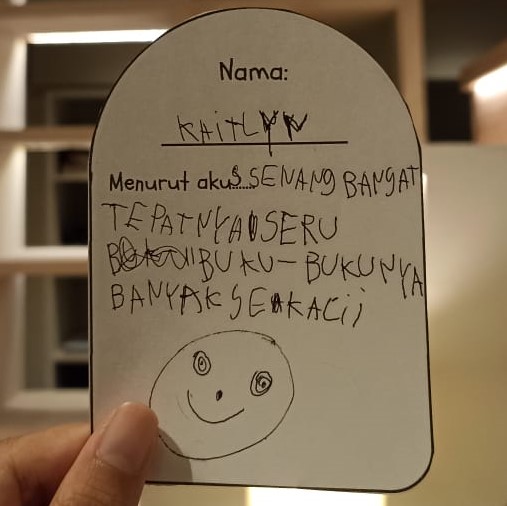 Nama:
KAiTLYN
Menurut aku.....SENANG BANGAT
TEPATNYA SERU
BUKU-BUKUNYA
BANYAK SEKALii